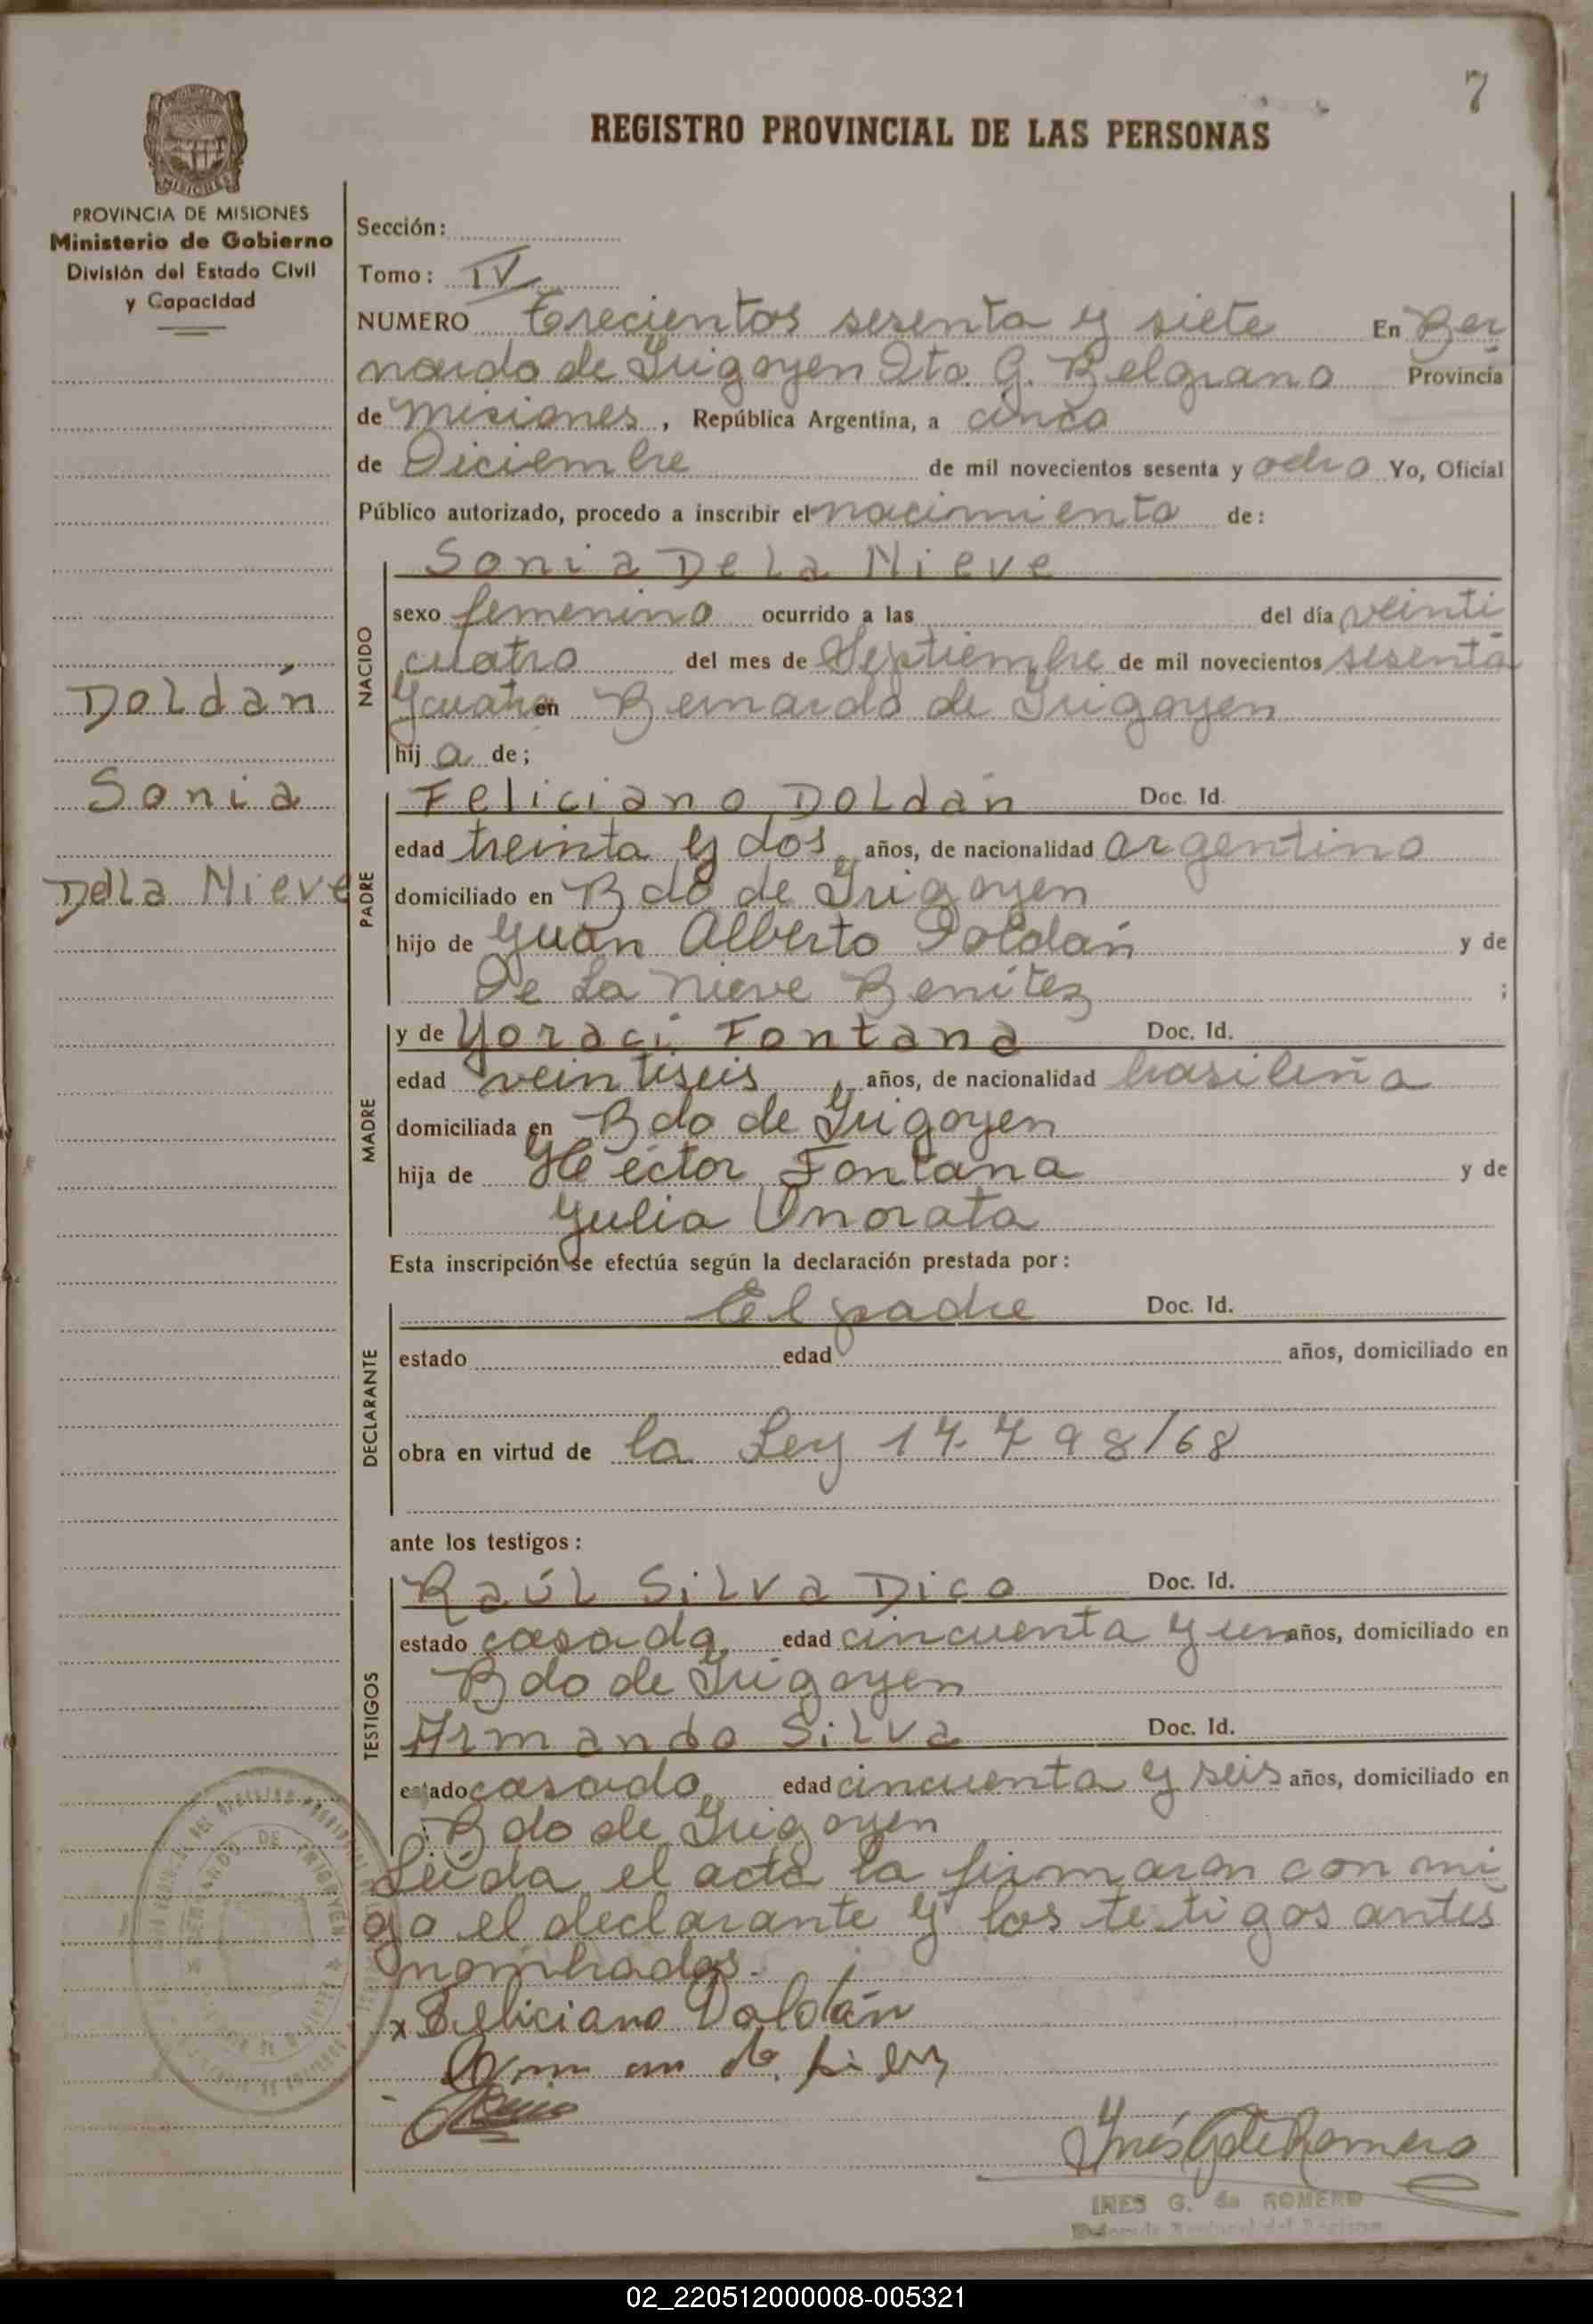 7
REGISTRO PROVINCIAL DE LAS PERSONAS
PROVINCIA DE MISIONES
Ministerio de Gobierno
División del Estado Civil
y Capacidad
Sección:
Tomo: IV
NUMERO Trecientos sesenta y siete En Ber
nardo de Irigoyen Dto. G. Belgrano Provincia
de Misiones, República Argentina, a cinco
de Diciembre de mil novecientos sesenta y ocho Yo, Oficial
Público autorizado, procedo a inscribir el nacimiento de:
Sonia De La Nieve
NACIDO
sexo femenino ocurrido a las del día veinti
cuatro del mes de Septiembre de mil novecientos sesenta
y cuatro en Bernardo de Irigoyen
hij a de;
Doldán
Sonia
De La Nieve
PADRE
Feliciano Doldán Doc. Id.
edad treinta y dos, años, de nacionalidad argentino
domiciliado en Bdo de Irigoyen
hijo de Juan Alberto Doldán y de
De La Nieve Benítez ;
MADRE
y de Yoraci Fontana Doc. Id.
edad veintiseis, años, de nacionalidad brasileña
domiciliada en Bdo de Irigoyen
hija de Héctor Fontana y de
Julia Onorata
Esta inscripción se efectúa según la declaración prestada por:
DECLARANTE
El padre Doc. Id.
estado edad años, domiciliado en
obra en virtud de la Ley 17.798/68
ante los testigos:
TESTIGOS
Raúl Silva Dico Doc. Id.
estado casado, edad cincuenta y un años, domiciliado en
Bdo de Irigoyen
Armando Silva Doc. Id.
estado casado, edad cincuenta y seis años, domiciliado en
Bdo de Irigoyen
Leída el acta la firmaron con mi
go el declarante y los testigos antes
nombrados.
x Feliciano Doldán
Inés G de Romero
INES G. de ROMERO
BERNARDO DE IRIGOYEN
02_220512000008-005321